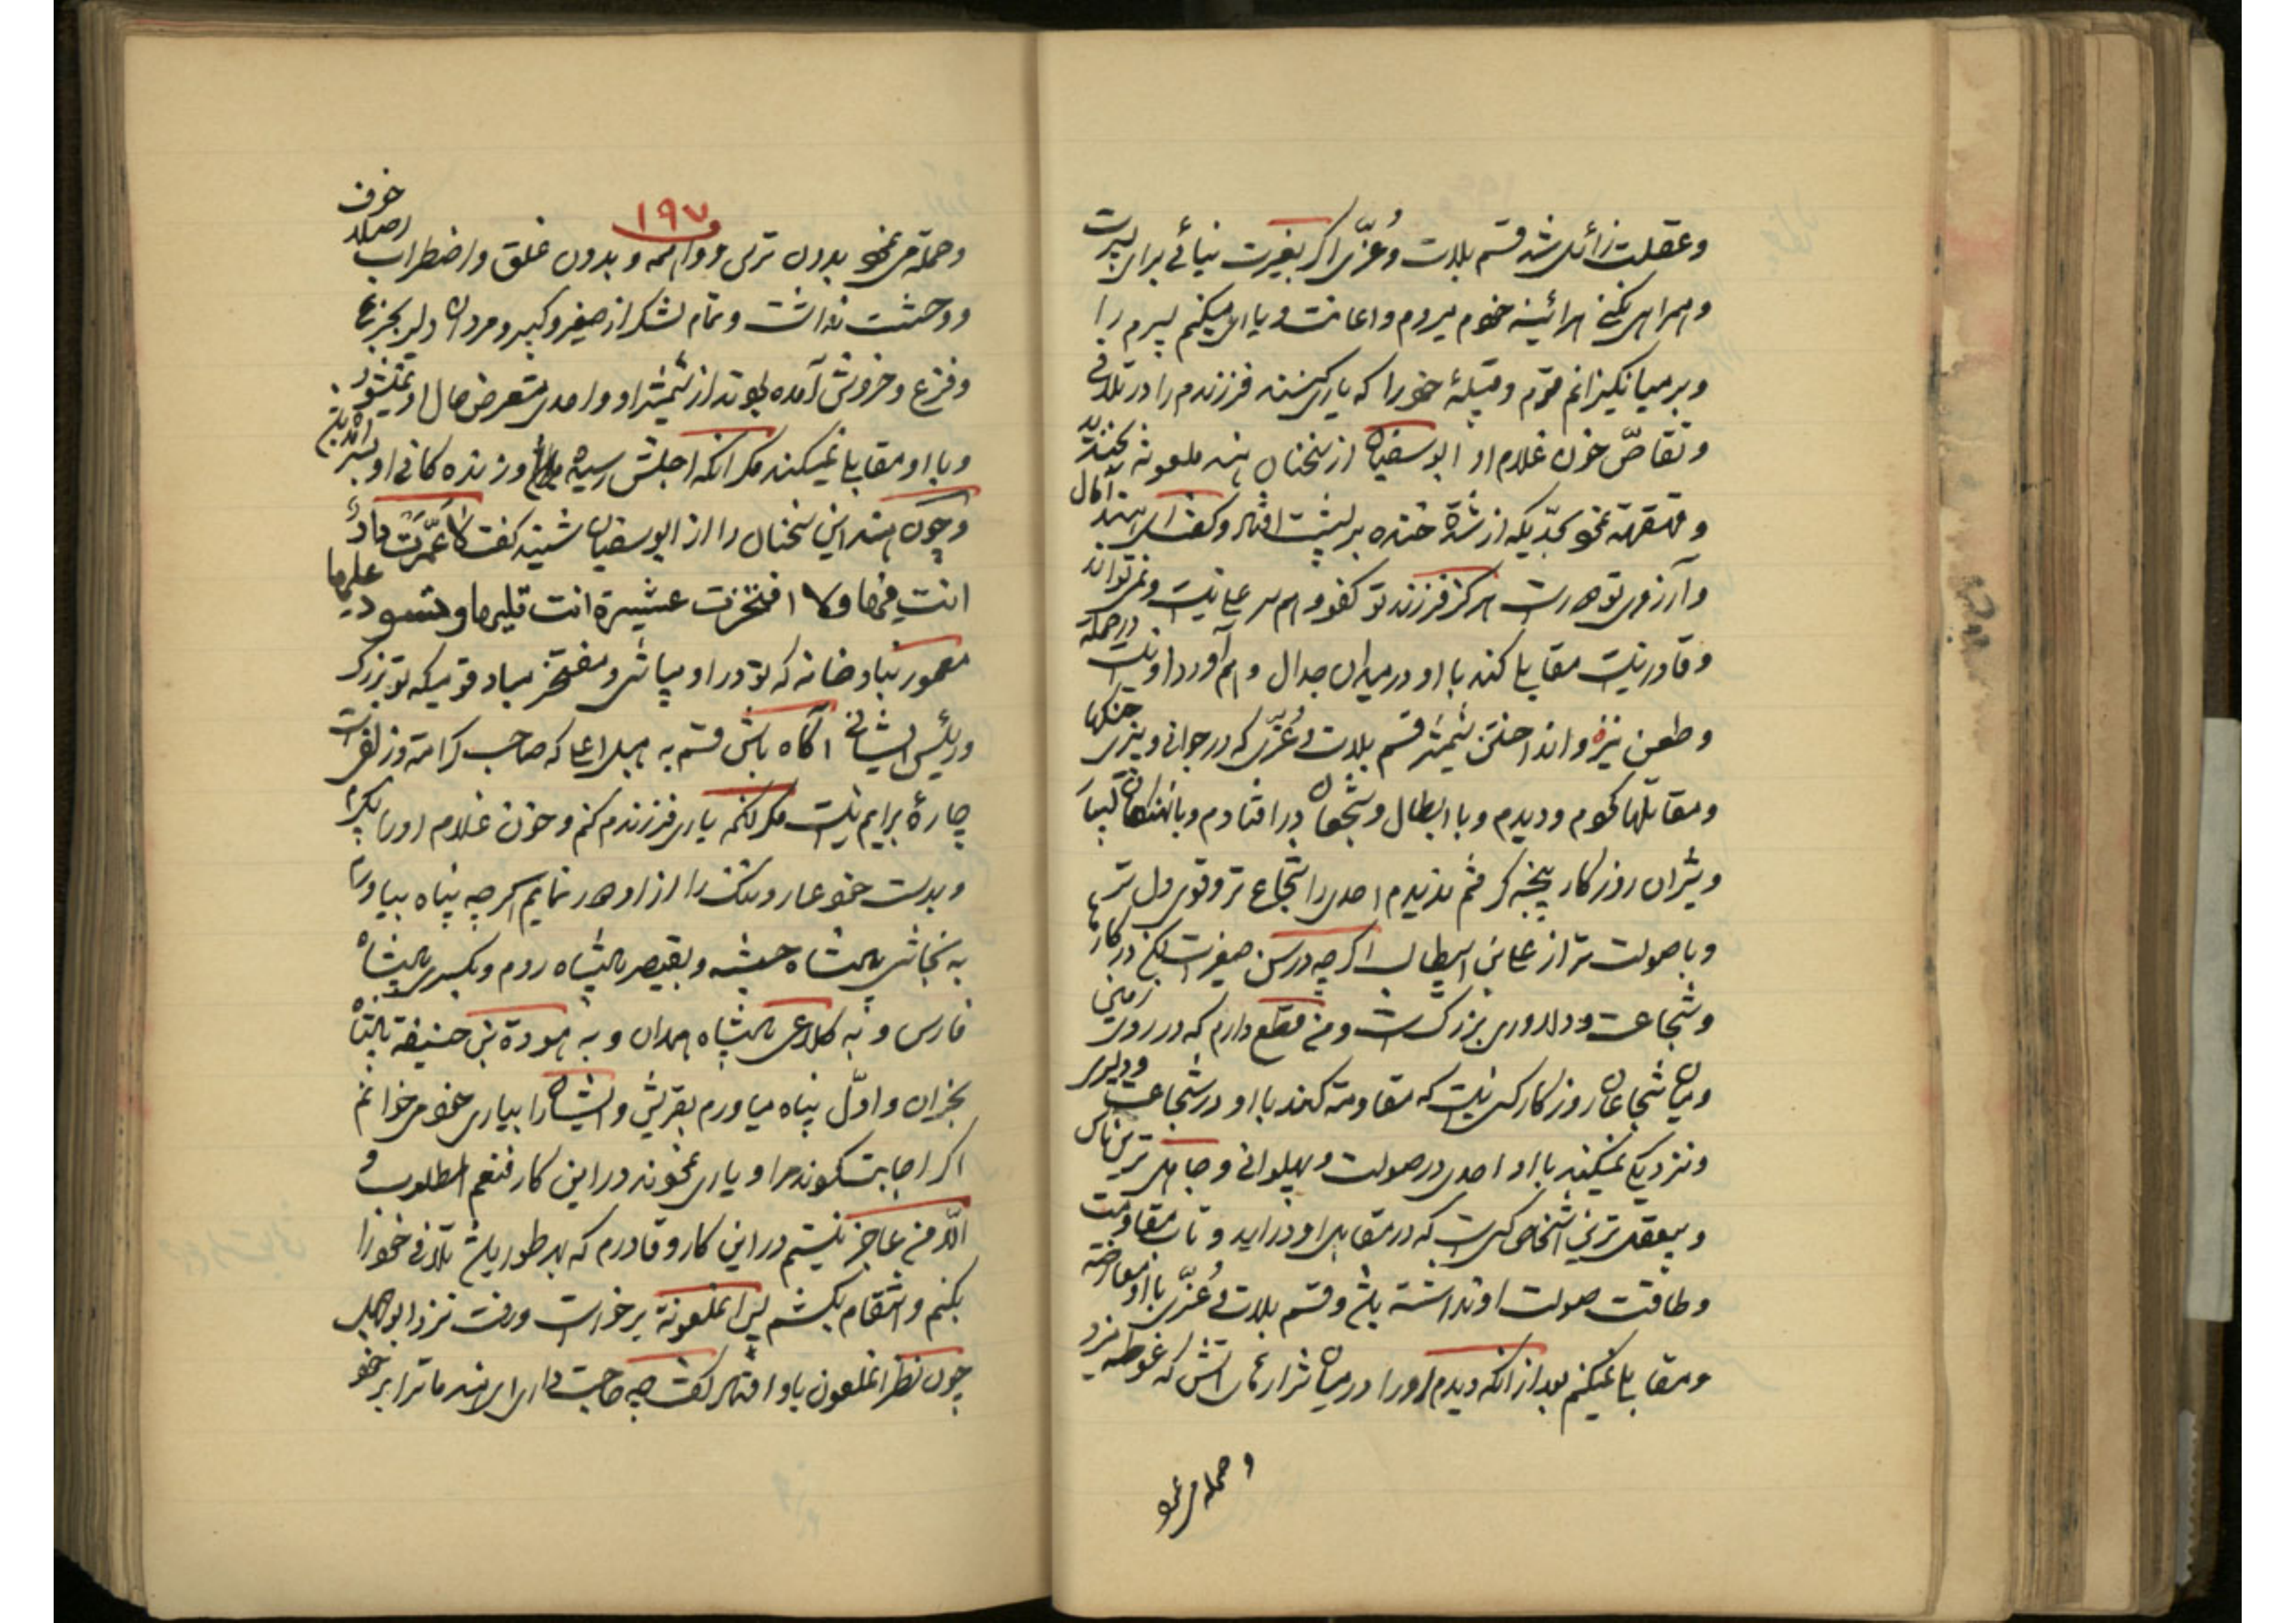 وعقلت زائل شد قسم بلات وعُزّی اکر بغیرت نیائی برای پسرت
و همراهی نکنی هرآئینه خودم میروم و اعانت و یاری میکنم پسرم را
و بر میانکیزانم قوم و قبیلهٔ خود را که یاری کنند فرزندم را در تلافی
و تقاصّ خون غلام او ابوسفیان از سخنان هند ملعونه بخندید
و قهقهه نمود بحدّیکه از شدّة خنده بر پشت افتاد و کفت ای هند آمال
و آرزوی تو دور است هرکز فرزند تو کفو و هم سر علی نیست و نمیتواند
و قادر نیست مقابلی کند با او در میدان جدال و هم آورد او نیست در حمله
و طعن نیزه و انداختن شمشیر قسم بلات و عُزّی که در جوانی و پیری جنکها
و مقاتلها نمودم و دیدم و با ابطال و شجعان در افتادم و با نهنکان
و شیران روزکار پنجه کرفتم ندیدم احدی را شجاع تر و قوی دل تر
و باصولت تر از علی بن ابیطالب اکرچه در سن صغیر است لکن در کارها
و شجاعت و دلاوری بزرک است و من قطع دارم که در روی زمین
و میان شجاعان روزکار کسی نیست که مقاومة کند با او در شجاعت و دلیری
و نزدیکی نمیکند با او احدی در صولت و پهلوانی و جاهل ترین ناس
و بیعقل ترین اشخاص کسی است که در مقابل او در اید و تاب مقاومت
و طاقت صولت او نداشته باشد و قسم بلات و عُزّی با او معارضه
و مقابلی نمیکنم بعد از انکه دیدم او را در میان شرارهای اتش که غوطه میزد
و حمله می نمود
١٩٧
و حمله می نمود بدون ترس و واهمه و بدون غلق و اضطراب اصلا خوف
و وحشت نداشت و تمام لشکر از صغیر و کبیر و مردان دلیر بجزع
و فزع و خروش آمده بودند از شمشیر او و احدی متعرض حال او نمیشود
و با او مقابلی نمیکند مکر انکه اجلش رسیده و از زنده کانی او بسر آمده باشد
و چون هند این سخنان را از ابوسفیان شنید کفت لا عمّرت دارٌ
انت فیها ولا افتخرت عشیرة انت تلیها و تسود علیها
معمور نباد خانه که تو در او میباشی و مفتخر مباد قومیکه تو بزرک
و رئیس ایشانی آکاه باش قسم به هبل اعلی که صاحب کرامة و زلفی است
چارهٔ برایم نیست مکر انکه یاری فرزندم کنم و خون غلام او را بکیرم
و بدست خود عار و ننک را از او دور نمایم اکرچه پناه بیاورم
به نجاشی پادشاه حبشه و بقیصر پادشاه روم و بکسری پادشاه
فارس و به کلاعی پادشاه همدان و به هودة بن حنیفة پادشاه
نجران و اوّل پناه میاورم بقریش و ایشان را بیاری خود میخوانم
اکر اجابت نمودند مرا و یاری نمودند در این کار فنعم المطلوب و
الّا من عاجز نیستم در این کار و قادرم که بهر طور باشد تلافی خود را
بکنم و انتقام بکشم پس انملعونة برخواست و رفت نزد ابوجهل
چون نظر انملعون باو افتاد کفت چه حاجت داری ای هند ما ترا بر خود